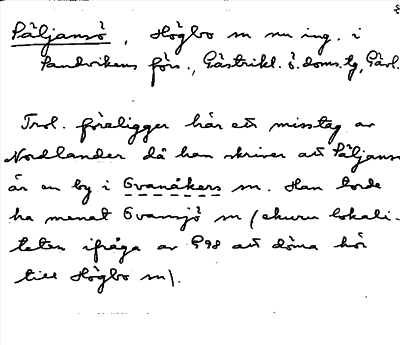 Päljansö, Högbo sn nu ing. i
Sandvikens förs., Gästrikl. ö. doms.tg, Gävl.
Trol. föreligger här ett misstag av
Nordlander då han skriver att Päljansö
är en by i Ovanåkers sn. Han torde
ha menat Ovansjö sn (ehuru lokali-
teten ifråga av G98 att döma hör
till Högbo sn).